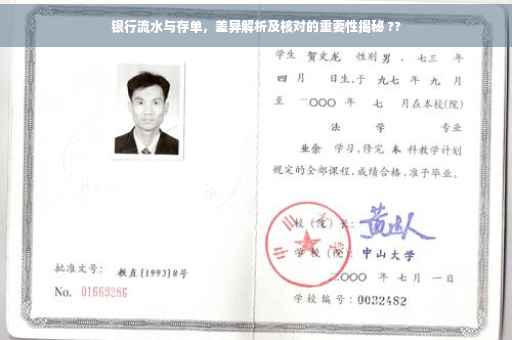 银行流水与存单，差异解析及核对的重要性揭秘 ??
学生 贺文龙 性别 男，七三 年
四 月 日生,于 九七 年 九 月
至 二〇〇〇 年 七 月在本校(院)
法 学 专业
业余 学习,修完 本 科教学计划
规定的全部课程,成绩合格,准予毕业。
校(院)长:
学校(院): 中山大学
二〇〇〇 年 七 月 一 日
学校编号: 0032482
批准文号: 教直(1993)8号
No. 01663286